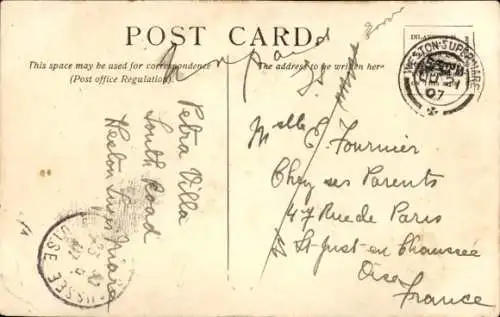 POST CARD
This space may be used for correspondence
(Post office Regulation).
The address to be written here
Petra Villa
South Road
Weston Super Mare
Melle E. Fournier
Chez ses Parents
47 Rue de Paris
St Just-en Chaussée
Oise
France
WESTON-SUPER-MARE
07